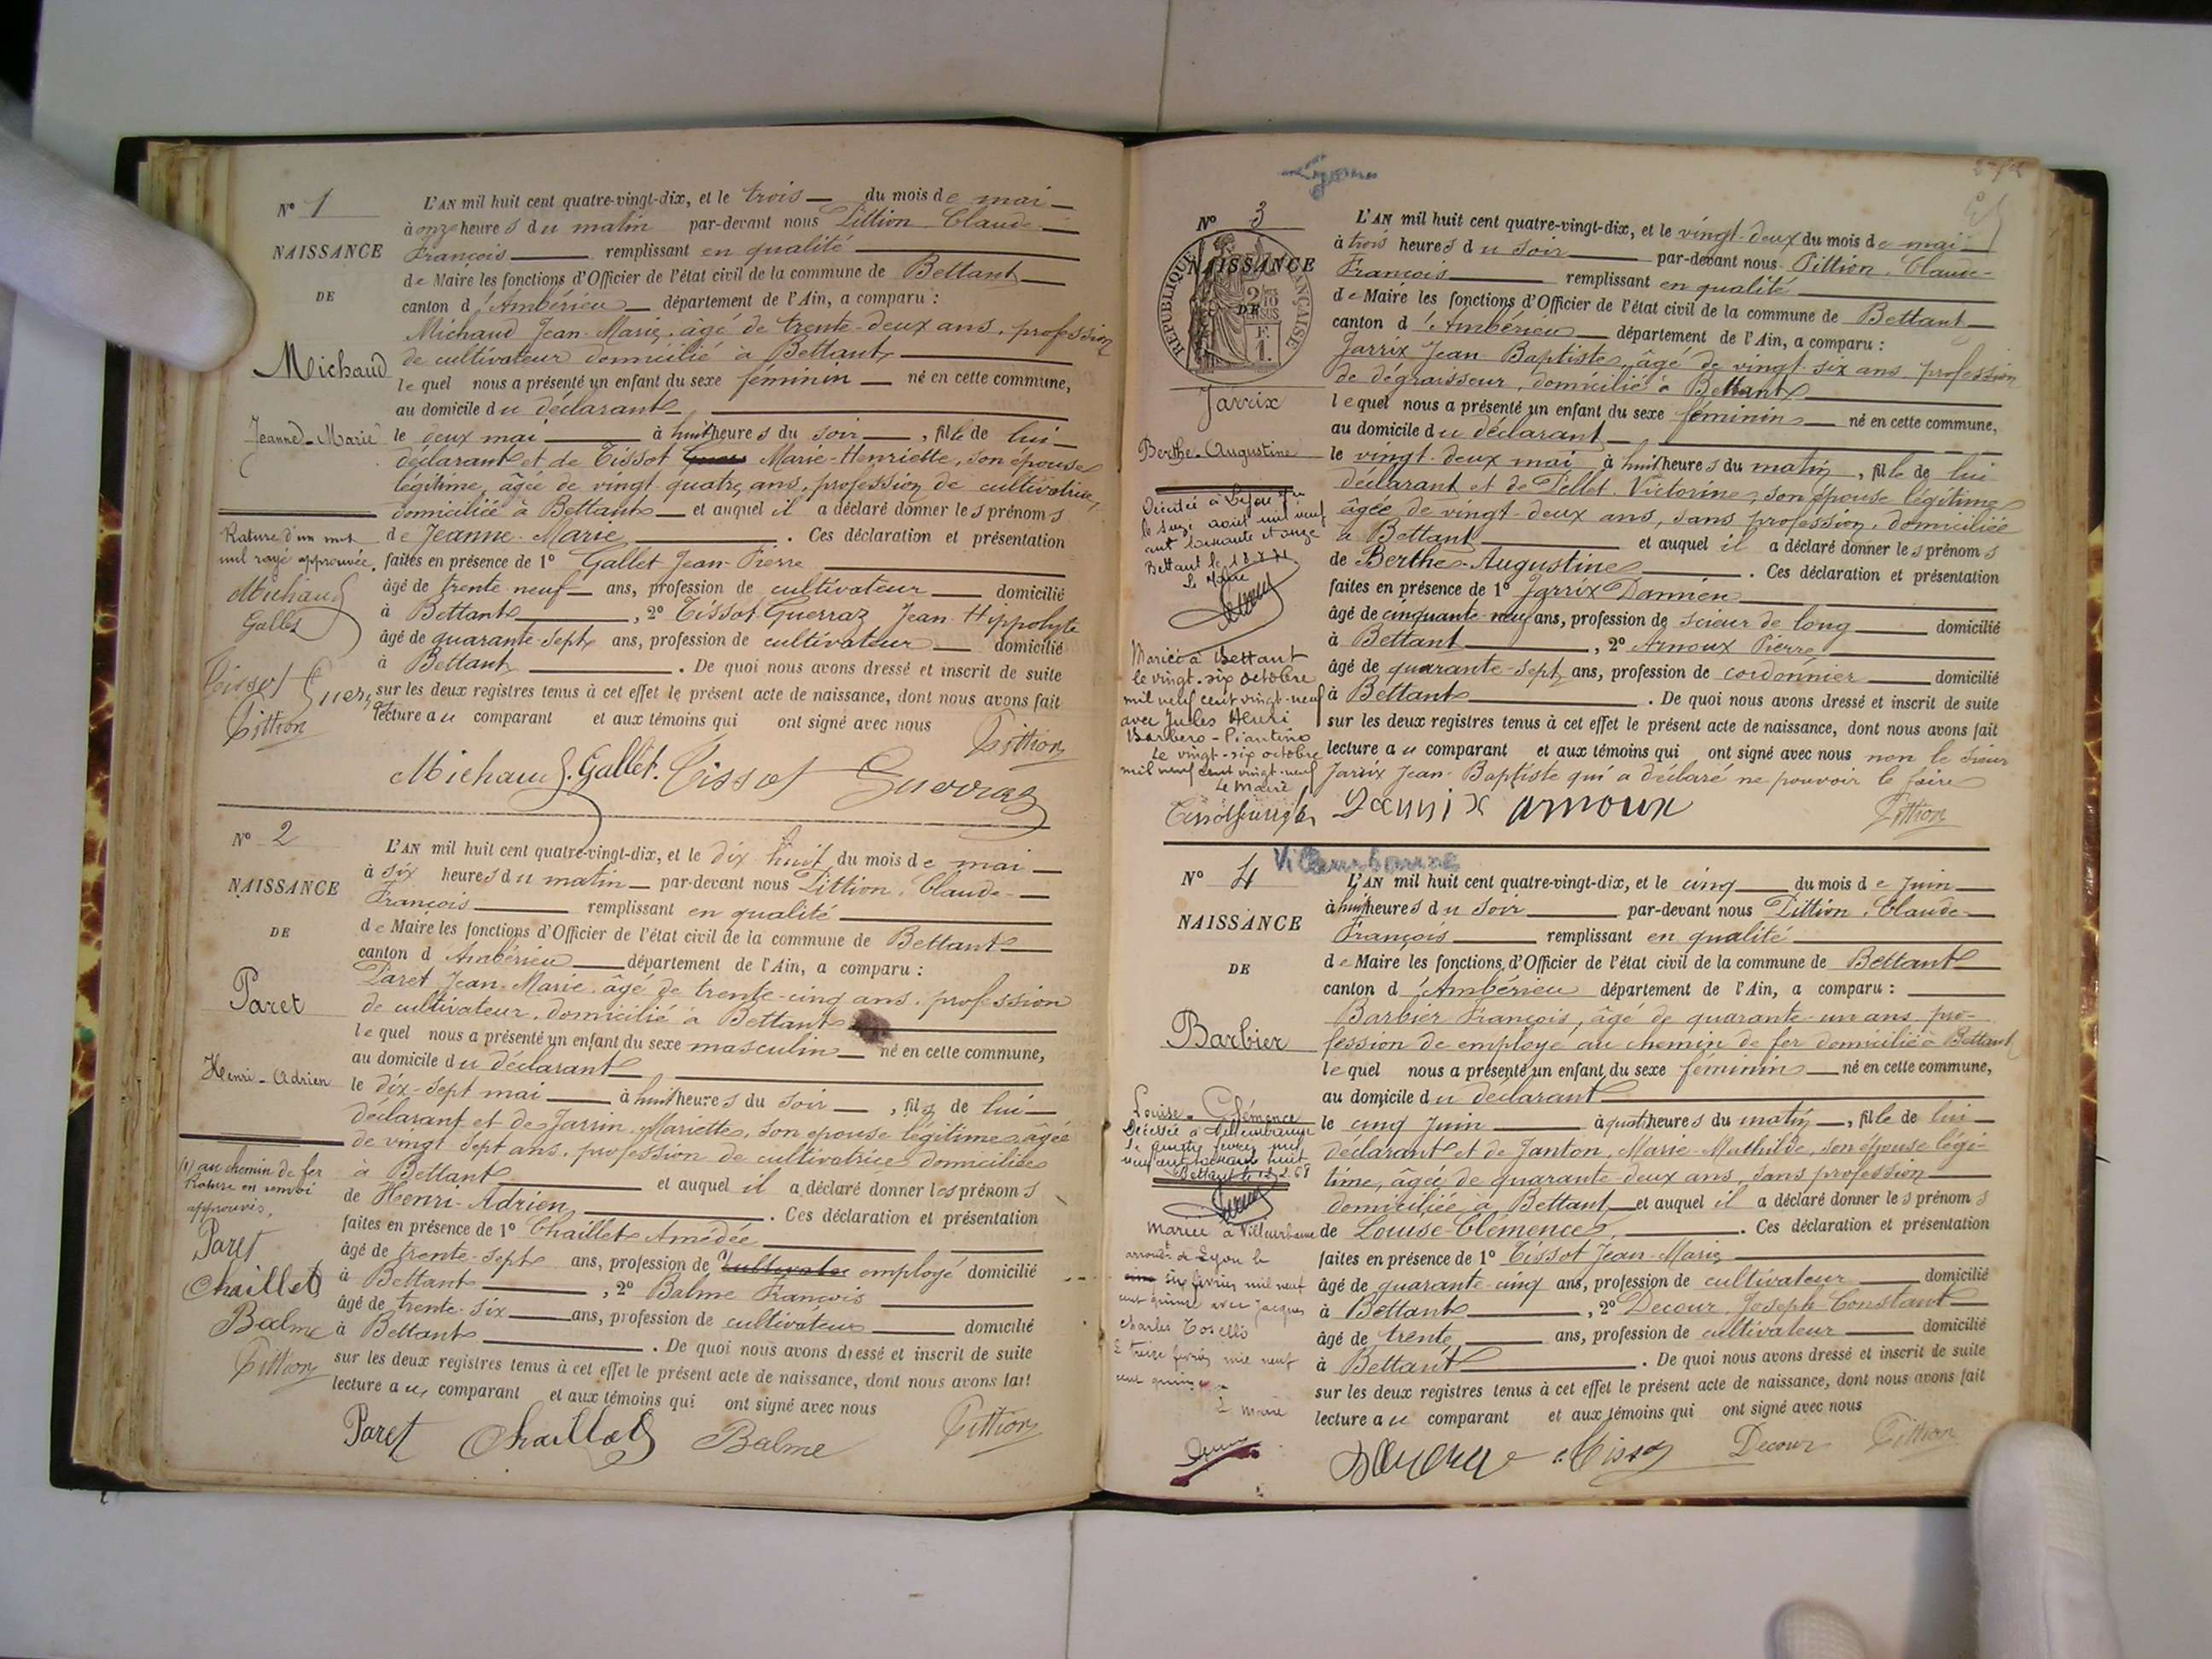 Nº 1
NAISSANCE
DE
Michaud
Jeanne-Marie
Rature d'un mot
nul rayé approuvée.
Michaud
Gallet
Tissot Guerraz
Pittion
L'AN mil huit cent quatre-vingt-dix, et le trois du mois de mai
à onze heures du matin par-devant nous Pittion, Claude-
François remplissant en qualité
de Maire les fonctions d'Officier de l'état civil de la commune de Bettant
canton d'Ambérieu département de l'Ain, a comparu :
Michaud Jean-Marie, âgé de trente-deux ans, profession
de cultivateur domicilié à Bettant
lequel nous a présenté un enfant du sexe féminin né en cette commune,
au domicile du déclarant
le deux mai à huit heures du soir, fille de lui
déclarant et de Tissot Marie-Henriette, son épouse
légitime, âgée de vingt-quatre ans, profession de cultivatrice,
domiciliée à Bettant et auquel il a déclaré donner les prénoms
de Jeanne-Marie. Ces déclaration et présentation
faites en présence de 1º Gallet Jean-Pierre
âgé de trente-neuf ans, profession de cultivateur domicilié
à Bettant, 2º Tissot-Guerraz Jean-Hippolyte
âgé de quarante-sept ans, profession de cultivateur domicilié
à Bettant. De quoi nous avons dressé et inscrit de suite
sur les deux registres tenus à cet effet le présent acte de naissance, dont nous avons fait
lecture au comparant et aux témoins qui ont signé avec nous
Pittion
Michaud J. Gallet. Tissot Guerraz
Nº 2
NAISSANCE
DE
Paret
Henri-Adrien
(1) au chemin de fer
Rature en renvoi
approuvés,
Paret
Chaillet
Balme
Pittion
L'AN mil huit cent quatre-vingt-dix, et le dix-huit du mois de mai
à six heures du matin par-devant nous Pittion, Claude-
François remplissant en qualité
de Maire les fonctions d'Officier de l'état civil de la commune de Bettant
canton d'Ambérieu département de l'Ain, a comparu :
Paret Jean-Marie, âgé de trente-cinq ans, profession
de cultivateur, domicilié à Bettant
lequel nous a présenté un enfant du sexe masculin né en cette commune,
au domicile du déclarant
le dix-sept mai à huit heures du soir, fils de lui
déclarant et de Jarrin Mariette, son épouse légitime, âgée
de vingt-sept ans, profession de cultivatrice domiciliée
à Bettant et auquel il a déclaré donner les prénoms
de Henri-Adrien. Ces déclaration et présentation
faites en présence de 1º Chaillet Amédée
âgé de trente-sept ans, profession de (1) cultivateur employé domicilié
à Bettant, 2º Balme François
âgé de trente-six ans, profession de cultivateur domicilié
à Bettant. De quoi nous avons dressé et inscrit de suite
sur les deux registres tenus à cet effet le présent acte de naissance, dont nous avons fait
lecture au comparant et aux témoins qui ont signé avec nous
Paret Chaillet Balme Pittion
Lyon
Nº 3
NAISSANCE
DE
RÉPUBLIQUE FRANÇAISE
Jarrix
Berthe-Augustine
Décédée à Lyon
août mil neuf
cent soixante et onze
Bettant le
Le Maire
Mariée à Bettant
le vingt-six octobre
mil neuf cent vingt-neuf
avec Jules Henri
Barbero-Piantino
Le vingt-six octobre
mil neuf cent vingt-neuf
Le Maire
L'AN mil huit cent quatre-vingt-dix, et le vingt-deux du mois de mai
à trois heures du soir par-devant nous Pittion, Claude-
François remplissant en qualité
de Maire les fonctions d'Officier de l'état civil de la commune de Bettant
canton d'Ambérieu département de l'Ain, a comparu :
Jarrix Jean-Baptiste, âgé de vingt-six ans, profession
de dégraisseur, domicilié à Bettant
lequel nous a présenté un enfant du sexe féminin né en cette commune,
au domicile du déclarant
le vingt-deux mai à huit heures du matin, fille de lui
déclarant et de Pellet Victorine, son épouse légitime
âgée de vingt-deux ans, sans profession, domiciliée
à Bettant et auquel il a déclaré donner les prénoms
de Berthe-Augustine. Ces déclaration et présentation
faites en présence de 1º Jarrix Damien
âgé de cinquante-neuf ans, profession de scieur de long domicilié
à Bettant, 2º Arnoux Pierre
âgé de quarante-sept ans, profession de cordonnier domicilié
à Bettant. De quoi nous avons dressé et inscrit de suite
sur les deux registres tenus à cet effet le présent acte de naissance, dont nous avons fait
lecture au comparant et aux témoins qui ont signé avec nous non le sieur
Jarrix Jean-Baptiste qui a déclaré ne pouvoir le faire
arnoux Pittion
Villeurbanne
Nº 4
NAISSANCE
DE
Barbier
Louise-Clémence
Décédée à Villeurbanne
le quatre février mil
neuf cent soixante huit
Bettant le 12.2.68
Mariée à Villeurbanne
arrondt de Lyon le
six février mil neuf
cent quinze avec Jacques
Charles Tosello
Le treize février mil neuf
cent quinze
Le Maire
L'AN mil huit cent quatre-vingt-dix, et le cinq du mois de Juin
à huit heures du soir par-devant nous Pittion, Claude-
François remplissant en qualité
de Maire les fonctions d'Officier de l'état civil de la commune de Bettant
canton d'Ambérieu département de l'Ain, a comparu :
Barbier François, âgé de quarante-un ans, pro-
fession de employé au chemin de fer domicilié à Bettant
lequel nous a présenté un enfant du sexe féminin né en cette commune,
au domicile du déclarant
le cinq Juin à quatre heures du matin, fille de lui
déclarant et de Janton, Marie-Mathilde, son épouse légi-
time, âgée de quarante-deux ans, sans profession
domiciliée à Bettant et auquel il a déclaré donner les prénoms
de Louise-Clémence. Ces déclaration et présentation
faites en présence de 1º Tissot Jean-Marie
âgé de quarante-cinq ans, profession de cultivateur domicilié
à Bettant, 2º Decour, Joseph-Constant
âgé de trente ans, profession de cultivateur domicilié
à Bettant. De quoi nous avons dressé et inscrit de suite
sur les deux registres tenus à cet effet le présent acte de naissance, dont nous avons fait
lecture au comparant et aux témoins qui ont signé avec nous
Tissot Decour Pittion